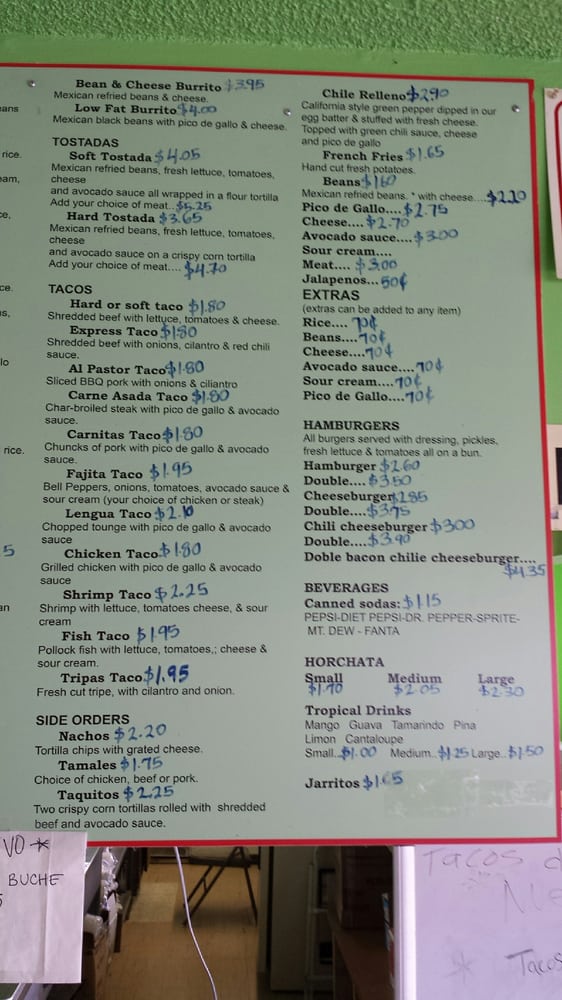 ans
rice.
eam,
ce,
ce.
s,
lo
rice.
5
an
Bean & Cheese Burrito $3.95
Mexican refried beans & cheese.
Low Fat Burrito $4.00
Mexican black beans with pico de gallo & cheese.
TOSTADAS
Soft Tostada $4.05
Mexican refried beans, fresh lettuce, tomatoes,
cheese
and avocado sauce all wrapped in a flour tortilla
Add your choice of meat..$5.25
Hard Tostada $3.65
Mexican refried beans, fresh lettuce, tomatoes,
cheese
and avocado sauce on a crispy corn tortilla
Add your choice of meat.... $4.70
TACOS
Hard or soft taco $1.80
Shredded beef with lettuce, tomatoes & cheese.
Express Taco $1.80
Shredded beef with onions, cilantro & red chili
sauce.
Al Pastor Taco $1.80
Sliced BBQ pork with onions & ciliantro
Carne Asada Taco $1.80
Char-broiled steak with pico de gallo & avocado
sauce.
Carnitas Taco $1.80
Chuncks of pork with pico de gallo & avocado
sauce.
Fajita Taco $1.95
Bell Peppers, onions, tomatoes, avocado sauce &
sour cream (your choice of chicken or steak)
Lengua Taco $2.10
Chopped tounge with pico de gallo & avocado
sauce
Chicken Taco $1.80
Grilled chicken with pico de gallo & avocado
sauce
Shrimp Taco $2.25
Shrimp with lettuce, tomatoes cheese, & sour
cream
Fish Taco $1.95
Pollock fish with lettuce, tomatoes,; cheese &
sour cream.
Tripas Taco $1.95
Fresh cut tripe, with cilantro and onion.
SIDE ORDERS
Nachos $2.20
Tortilla chips with grated cheese.
Tamales $1.75
Choice of chicken, beef or pork.
Taquitos $2.25
Two crispy corn tortillas rolled with shredded
beef and avocado sauce.
Chile Relleno $2.90
California style green pepper dipped in our
egg batter & stuffed with fresh cheese.
Topped with green chili sauce, cheese
and pico de gallo
French Fries $1.65
Hand cut fresh potatoes.
Beans $1.60
Mexican refried beans. * with cheese....$2.20
Pico de Gallo.... $2.75
Cheese.... $2.70
Avocado sauce.... $3.00
Sour cream....
Meat.... $3.00
Jalapenos... 50¢
EXTRAS
(extras can be added to any item)
Rice.... 70¢
Beans.... 70¢
Cheese.... 70¢
Avocado sauce.... 70¢
Sour cream.... 70¢
Pico de Gallo.... 70¢
HAMBURGERS
All burgers served with dressing, pickles,
fresh lettuce & tomatoes all on a bun.
Hamburger $2.60
Double.... $3.50
Cheeseburger $2.85
Double.... $3.75
Chili cheeseburger $3.00
Double.... $3.90
Doble bacon chilie cheeseburger....
$4.35
BEVERAGES
Canned sodas: $1.15
PEPSI-DIET PEPSI-DR. PEPPER-SPRITE-
MT. DEW - FANTA
HORCHATA
Small Medium Large
$1.70 $2.05 $2.30
Tropical Drinks
Mango Guava Tamarindo Pina
Limon Cantaloupe
Small..$1.00 Medium..$1.25 Large..$1.50
Jarritos $1.65
VO *
BUCHE
Tacos d
* Tacos